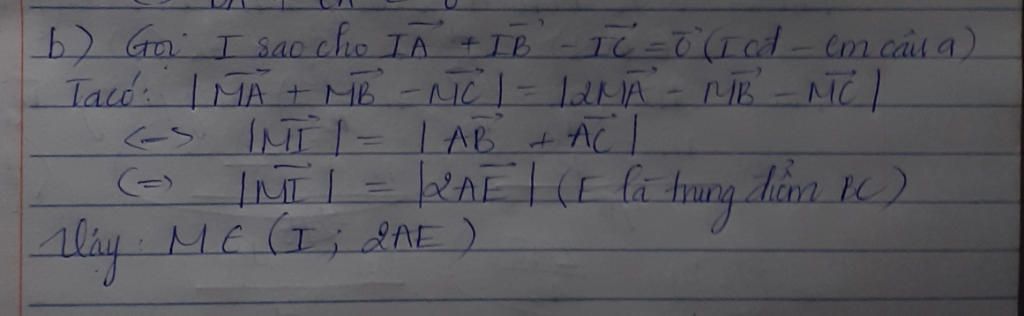 b) Gọi I sao cho IA→ + IB→ - IC→ = 0→ (I cđ - cm câu a)
Ta có: |MA→ + MB→ - MC→| = |2MA→ - MB→ - MC→|
<-> |MI→| = |AB→ + AC→|
(=) |MI→| = |2AE→| (E là trung điểm BC)
Vậy: M ∈ (I; 2AE)